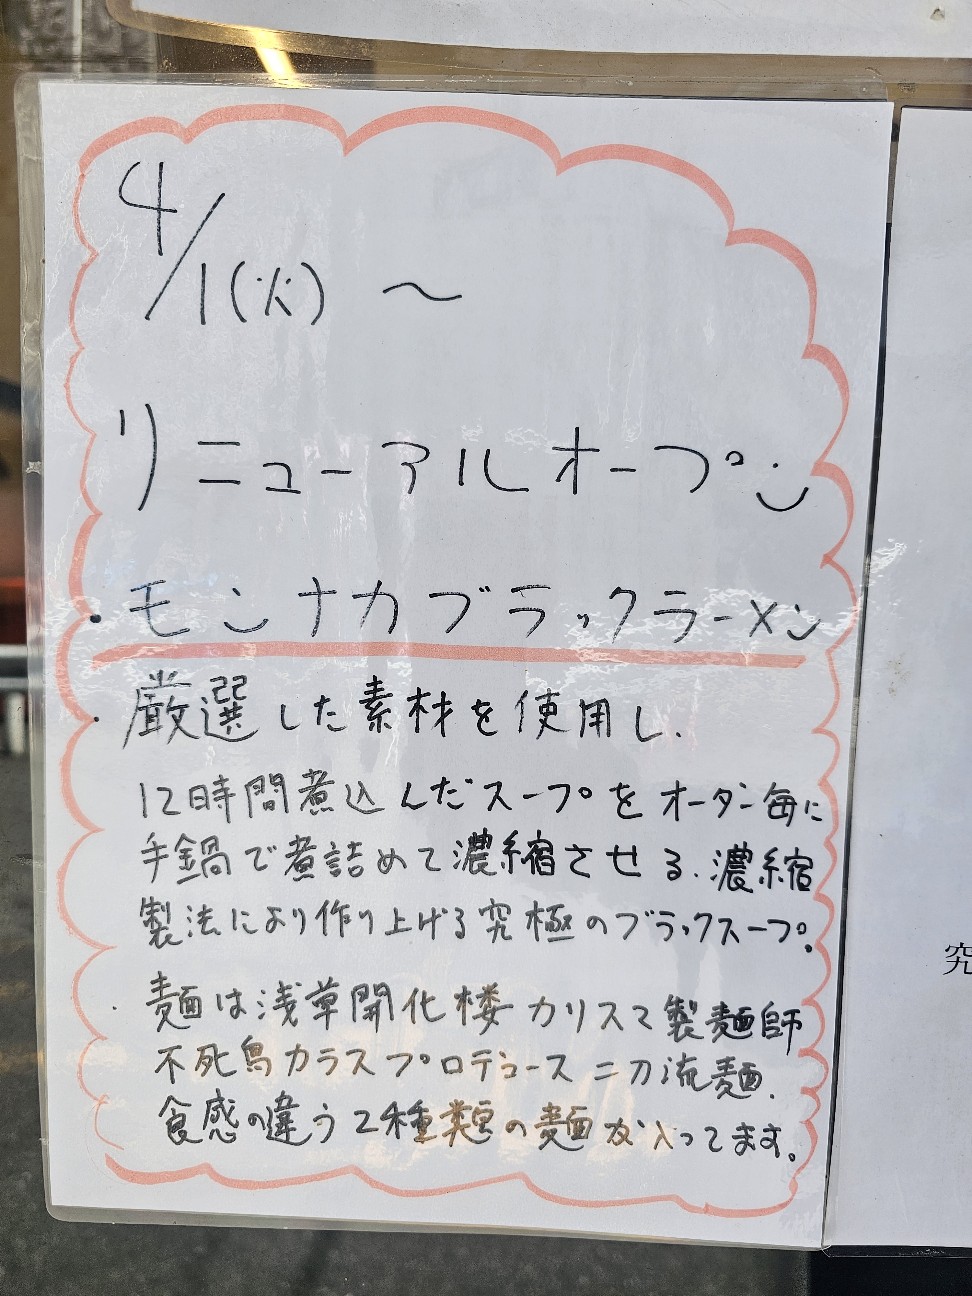 4/1(火) ～
リニューアルオープン
・モンナカブラックラーメン
・厳選した素材を使用し、
12時間煮込んだスープをオーダー毎に
手鍋で煮詰めて濃縮させる、濃縮
製法により作り上げる究極のブラックスープ。
・麺は浅草開化楼カリスマ製麺師
不死鳥カラスプロデュース二刀流麺、
食感の違う2種類の麺が入ってます。
究